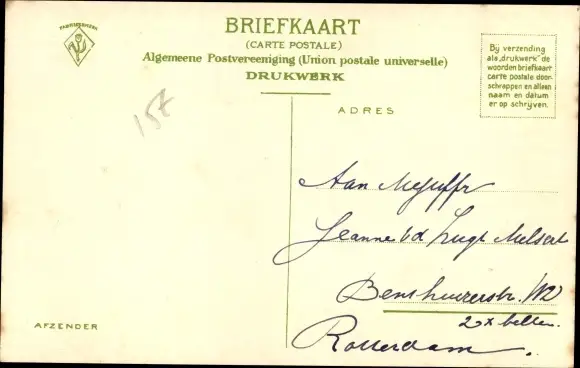 FABRIEKSMERK
BRIEFKAART
(CARTE POSTALE)
Algemeene Postvereeniging (Union postale universelle)
DRUKWERK
Bij verzending
als „drukwerk" de
woorden briefkaart
carte postale door-
schrappen en alleen
naam en datum
er op schrijven.
ADRES
15F
Aan Mejuffr
Jeanne v d Lugt Melsert
2 x bellen.
Rotterdam.
AFZENDER